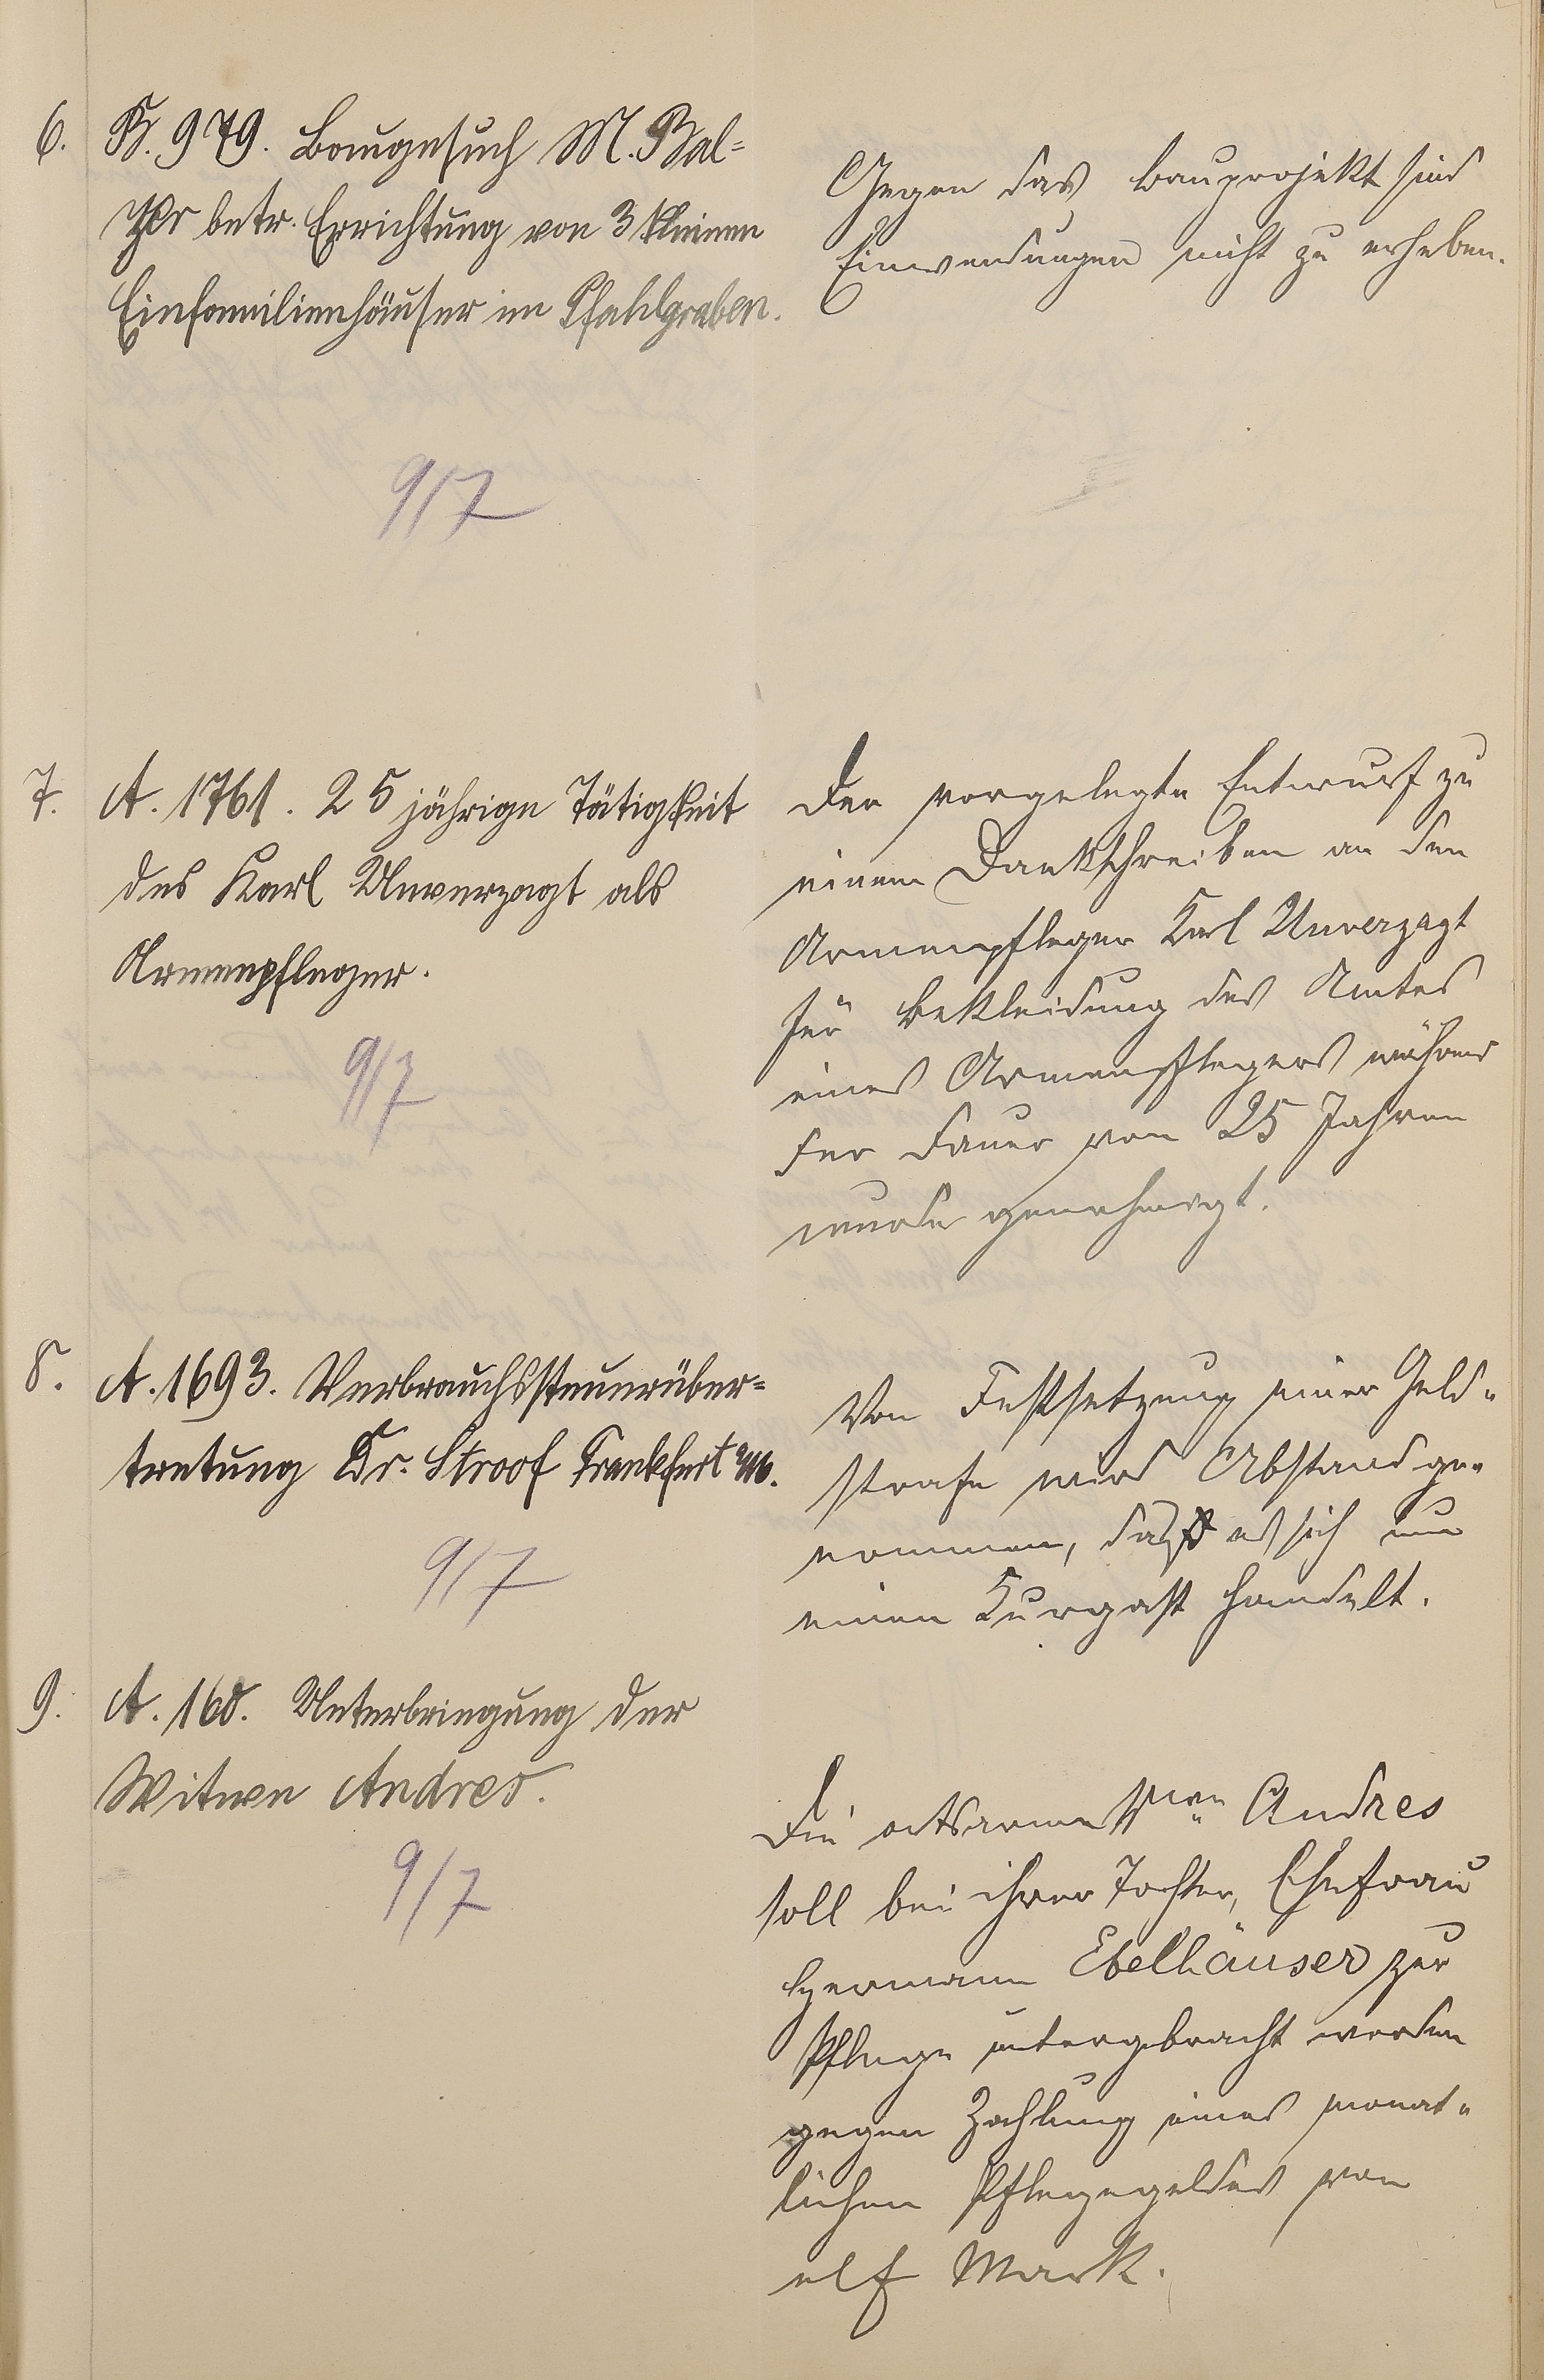 6. B. 979. Baugesuch M. Bal=
zer betr. Errichtung von 3 kleinen
Einfamilienhäuser im Pfahlgraben.
9/7
Gegen das Bauprojekt sind
Einwendungen nicht zu erheben.
7. A. 1761. 25 jährige Tätigkeit
des Karl Unverzagt als
Armenpfleger.
9/7
Der vorgelegte Entwurf zu
einem Dankschreiben an den
Armenpfleger Karl Unverzagt
für Bekleidung des Amtes
eines Armenpflegers während
der Dauer von 25 Jahren
wurde genehmigt.
8. A. 1693. Verbrauchssteuerüber=
tretung Dr. Stroof Frankfurt a/M.
9/7
Von Festsetzung einer Geld=
strafe wird Abstand ge=
nommen, da es sich um
einen Kurgast handelt.
9. A. 160. Unterbringung der
Witwe Andres.
9/7
Die ortsarme Wwe Andres
soll bei ihrer Tochter, Ehefrau
Hermann Ebelhäuser zur
Pflege untergebracht werden
gegen Zahlung eines monat=
lichen Pflegegeldes von
elf Mark.